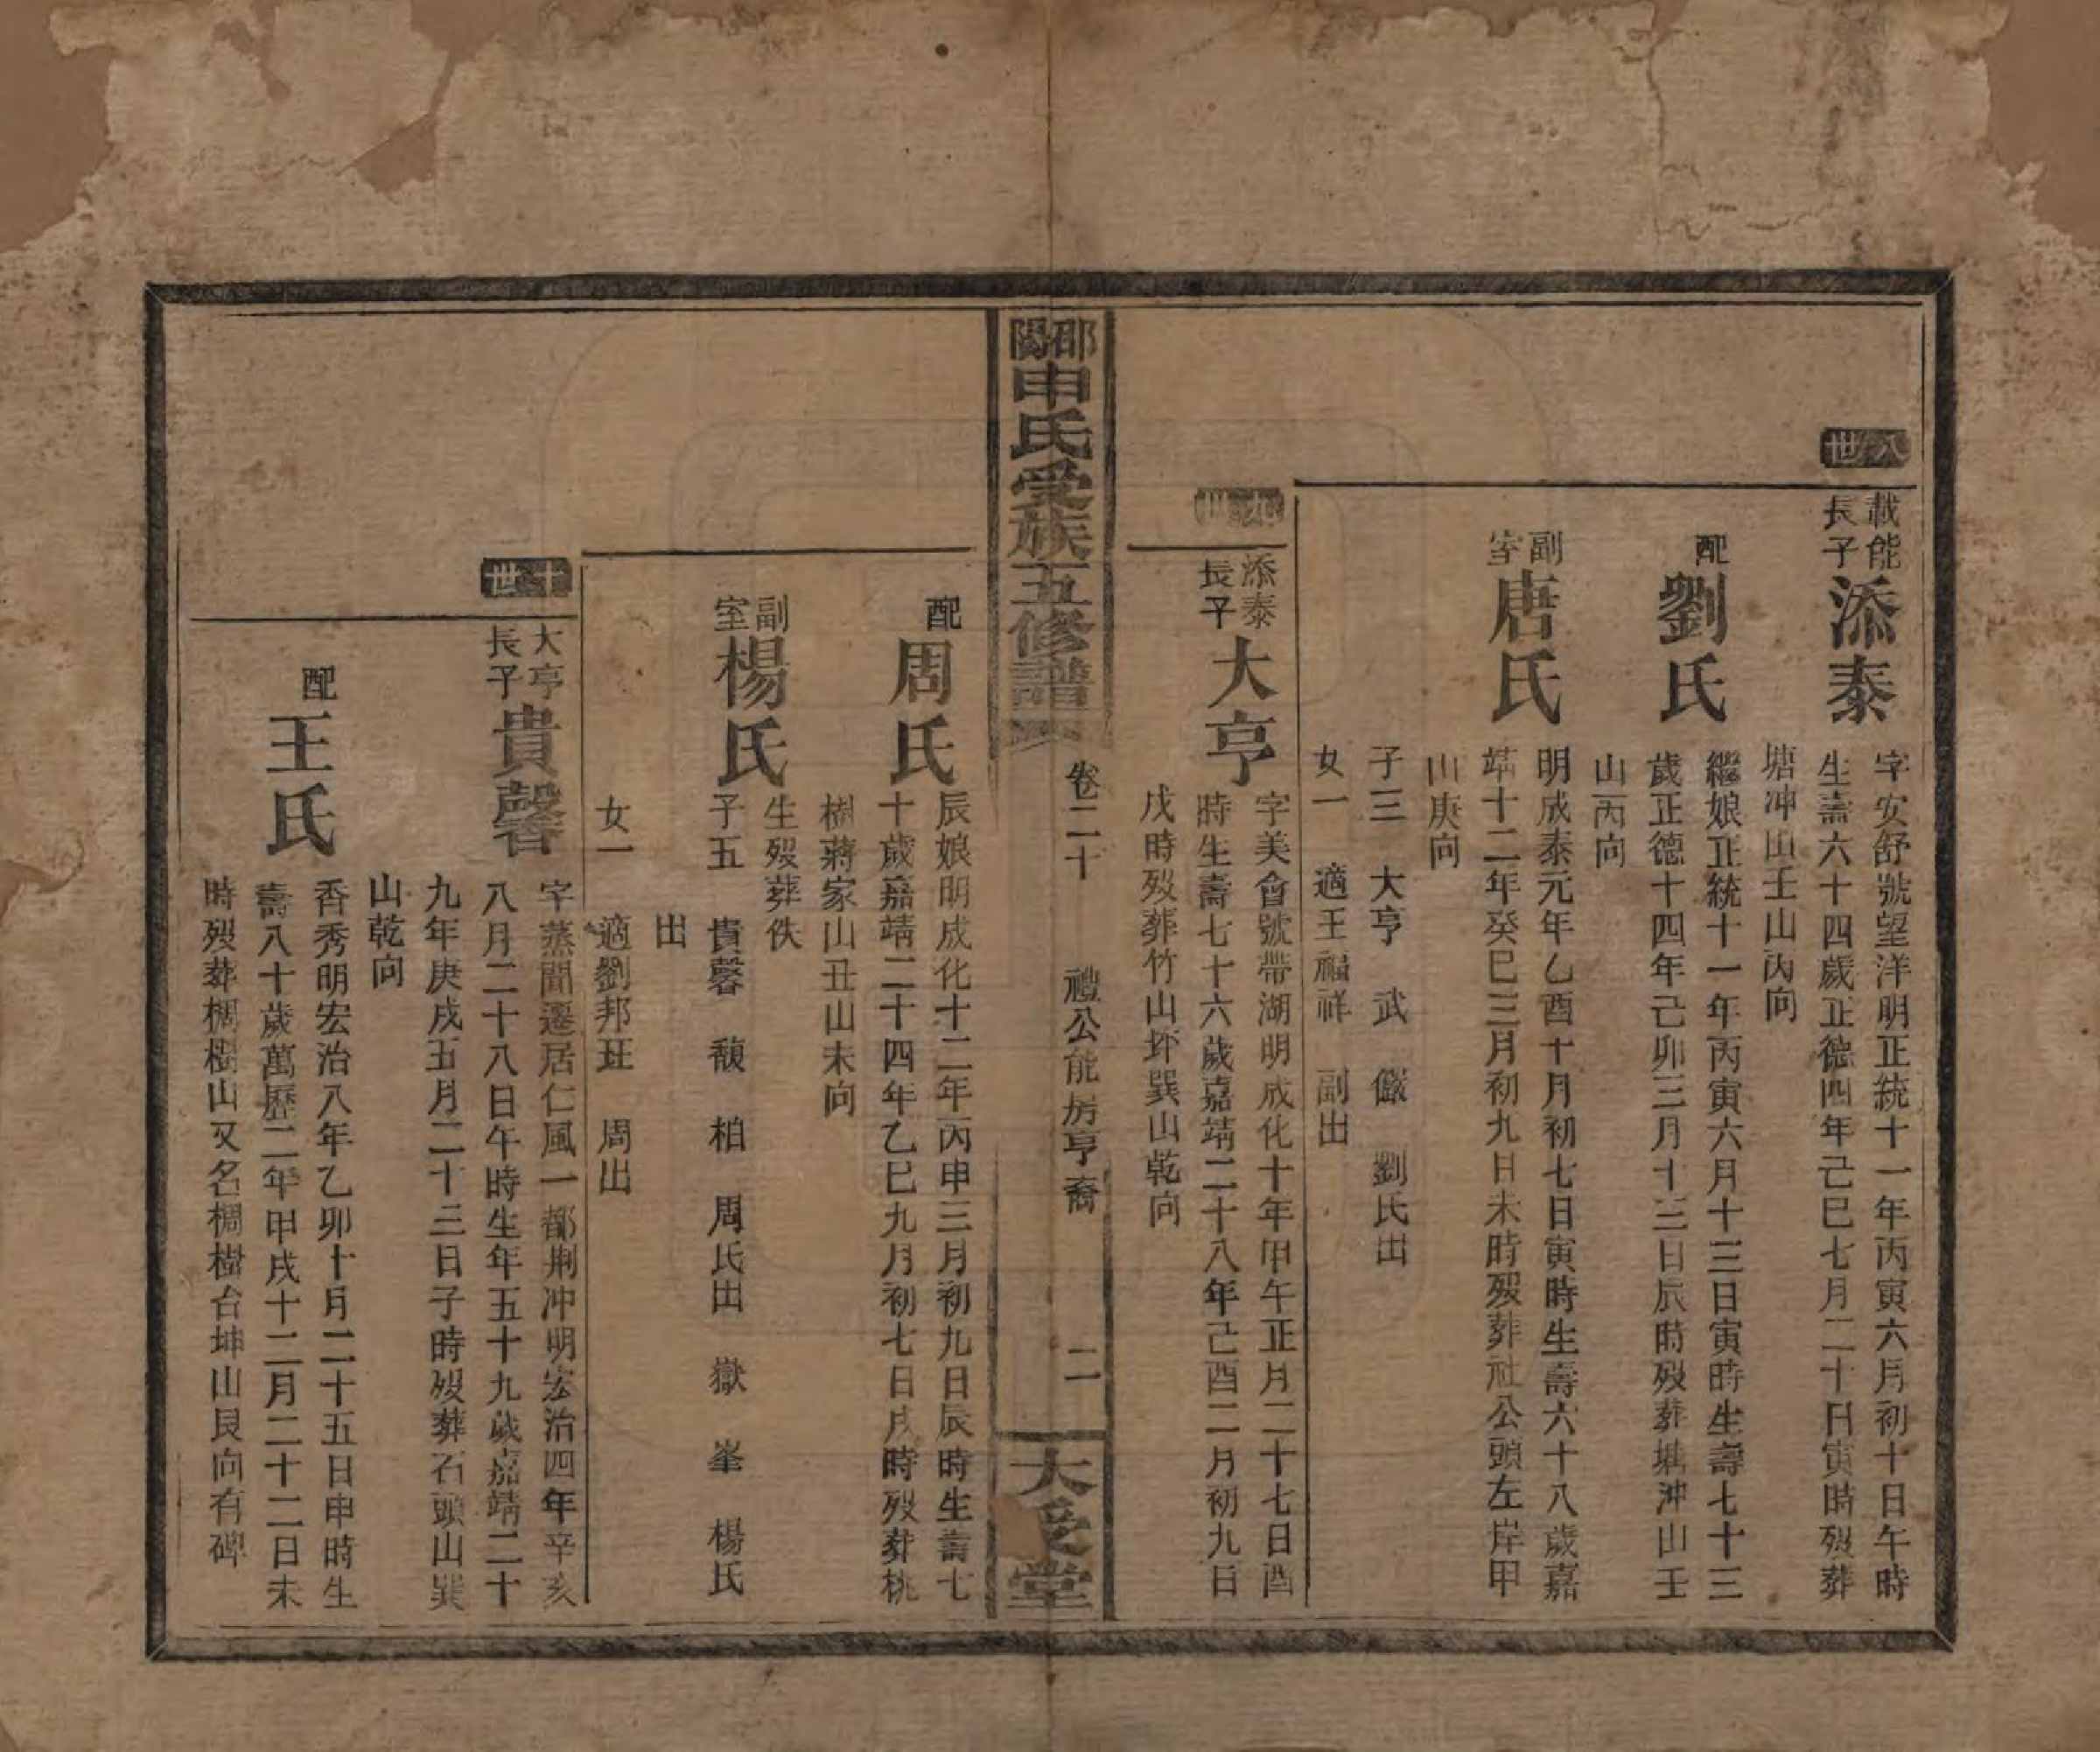 八世
載能長子
添泰
字安舒號望洋明正統十一年丙寅六月初十日午時
生壽六十四歲正德四年己巳七月二十日寅時歿葬
塘冲山壬山丙向
配
劉氏
繼娘正統十一年丙寅六月十三日寅時生壽七十三
歲正德十四年己卯三月十三日辰時歿葬塘冲山壬
山丙向
副室
唐氏
明成泰元年乙酉十月初七日寅時生壽六十八歲嘉
靖十二年癸巳三月初九日未時歿葬社公頭左岸甲
山庚向
子三 大亨 武 儼 劉氏出
女一 適王福祥 副出
九世
添泰長子
大亨
字美會號帶湖明成化十年甲午正月二十七日酉
時生壽七十六歲嘉靖二十八年己酉二月初九日
戌時歿葬竹山坏巽山乾向
邵陽申氏受族五修譜
卷二十 禮公能房亨裔 二
大受堂
配
周氏
辰娘明成化十二年丙申三月初九日辰時生壽七
十歲嘉靖二十四年乙巳九月初七日戌時歿葬桃
樹蔣家山丑山未向
副室
楊氏
生歿葬佚
子五 貴馨 馥 柏 周氏出 嶽 峯 楊氏
出
女一 適劉邦珏 周出
十世
大亨長子
貴馨
字蒸聞遷居仁風一都荆冲明宏治四年辛亥
八月二十八日午時生年五十九歲嘉靖二十
九年庚戌五月二十三日子時歿葬石頭山巽
山乾向
配
王氏
香秀明宏治八年乙卯十月二十五日申時生
壽八十歲萬歷二年甲戌十二月二十二日未
時歿葬棡樹山又名棡樹台坤山艮向有碑